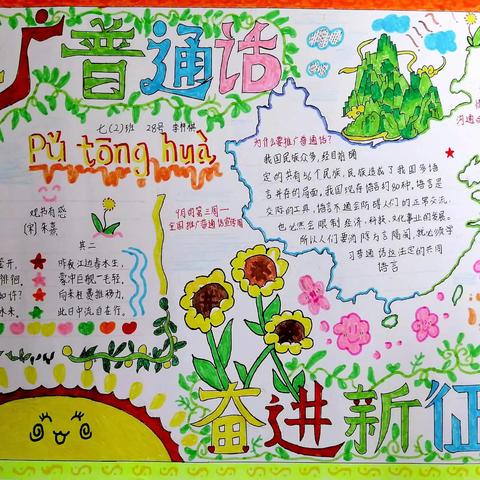 广普通话
七(2)班 28号
Pǔ tōng huà
为什么要推广普通话?
我国民族众多,经目前确
定的共有56个民族,民族造成了我国多语
言并存的局面,我国现存语言约80种,语言是
交际的工具,语言不通会防碍人们的正常交流,
也必然会限制经济、科技、文化事业的发展。
所以人们要消除方言隔阂,就必须学
习普通话这法定的共同
语言
9月的第三周一
全国推广普通话宣传周
观书有感
(宋)朱熹
其二
昨夜江边春水生,
蒙冲巨舰一毛轻。
向来枉费推移力,
此日中流自在行。
开,
徘徊。
如许?
水来。
沟通
奋进新征